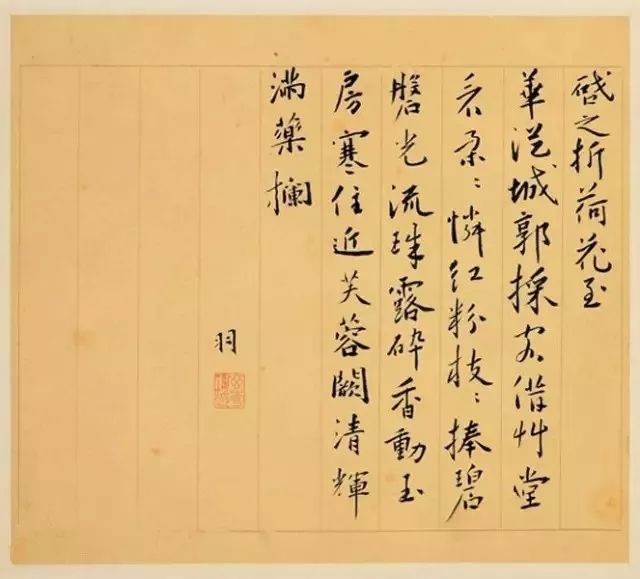 啟之折荷花至
華從城郭採客借艸堂
看朵〻憐紅粉枝〻捧碧
盤光流珠露砕香動玉
房寒住近芙蓉闕清輝
滿藥欄
羽